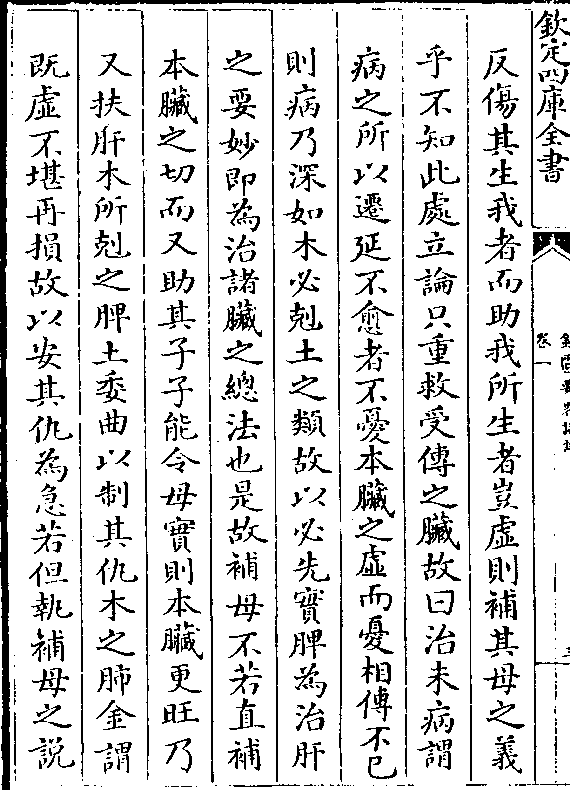 欽定四庫全書
卷一
反傷其生我者而助我所生者豈虛則補其母之義
乎不知此處立論只重救受傳之臟故曰治未病謂
病之所以遷延不愈者不憂本臟之虛而憂相傳不已
則病乃深如木必剋土之類故以必先實脾為治肝
之要妙即為治諸臟之總法也是故補母不若直補
本臟之切而又助其子子能令母實則本臟更旺乃
又扶肝木所剋之脾土委曲以制其仇木之肺金謂
既虛不堪再損故以安其仇為急若但執補母之說